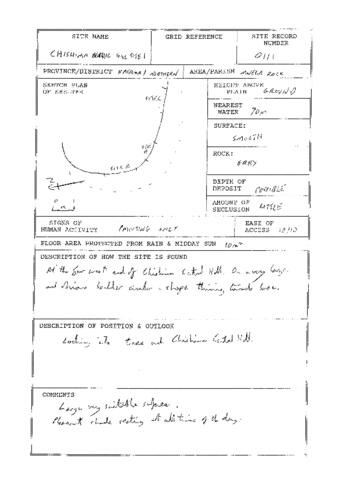 SITE NAME
GRID REFERENCE
SITE RECORD NUMBER
CHISHIMA
0111
PROVINCE/DISTRICT KASAMA / NORTHERN
AREA/PARISH MWELA ROCK
SKETCH PLAN
OF
HEIGHT ABOVE
PLAIN GROUND
NEAREST
WATER 70m
SURFACE:
SMOOTH
ROCK:
GREY
DEPTH OF
DEPOSIT POSSIBLE
AMOUNT OF
SECLUSION LITTLE
SIGNS OF
HUMAN ACTIVITY PAINTING ONLY
EASE OF
ACCESS 10/10
FLOOR AREA PROTECTED FROM RAIN & MIDDAY SUN 10m²
DESCRIPTION OF HOW THE SITE IS FOUND
At the far west end of Chishima Hill. On a very large
and obvious boulder in shape thinning towards base.
DESCRIPTION OF POSITION & OUTLOOK
Looking into trees and Chishima Hill.
COMMENTS
Large very suitable surface.
Pleasant shade at all times of the day.